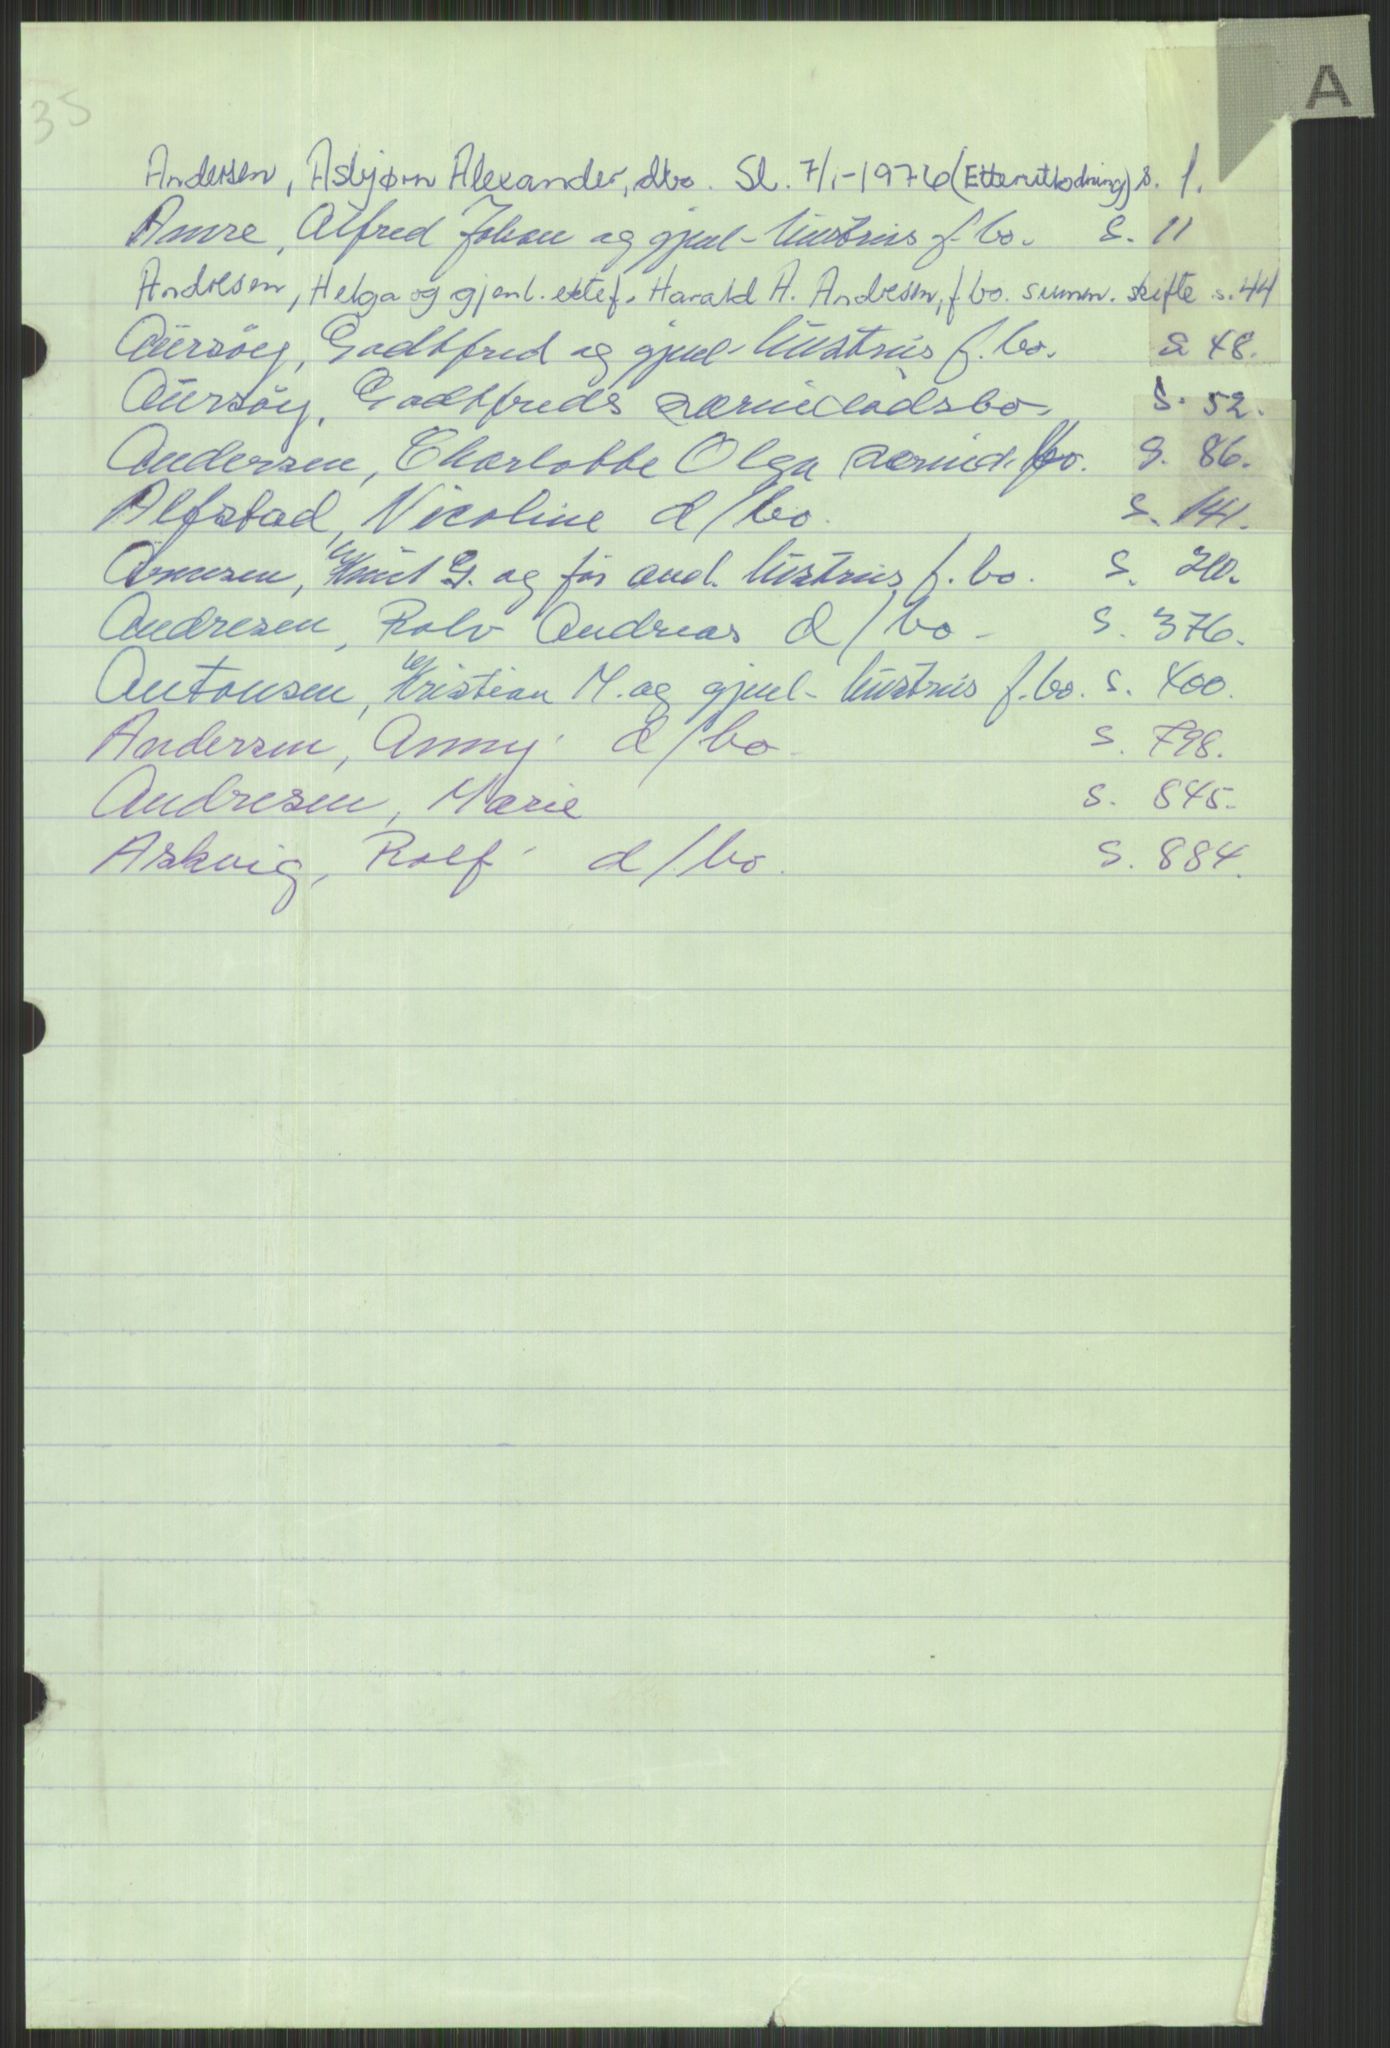 A
35
Andersen, Asbjørn Alexander, dbo. Sl. 7/1-1976 (Etterutlodning) s. 1.
Amre, Alfred Johan og gjenl. hustrus f. bo. S. 11
Andresen, Helga og gjenl. ektef. Harald A. Andresen, f. bo. summ. skifte s. 44
Aursøy, Godtfred og gjenl. hustrus f. bo. S. 48.
Aursøy, Godtfreds særinnbodsbo. S. 52.
Andersen, Charlotte Olga særind. bo. S. 86.
Alfstad, Nicoline d/bo. S. 141.
Knut G. og før avd. hustrus f. bo. S.
Andresen, Rolv Andreas d/bo - S. 376.
Antonsen, Kristian M. og gjenl. hustrus f. bo. S. 400.
Andersen, Anny d/bo. S. 798.
Andresen, Marie S. 845.
Askvig, Rolf d/bo. S. 884.